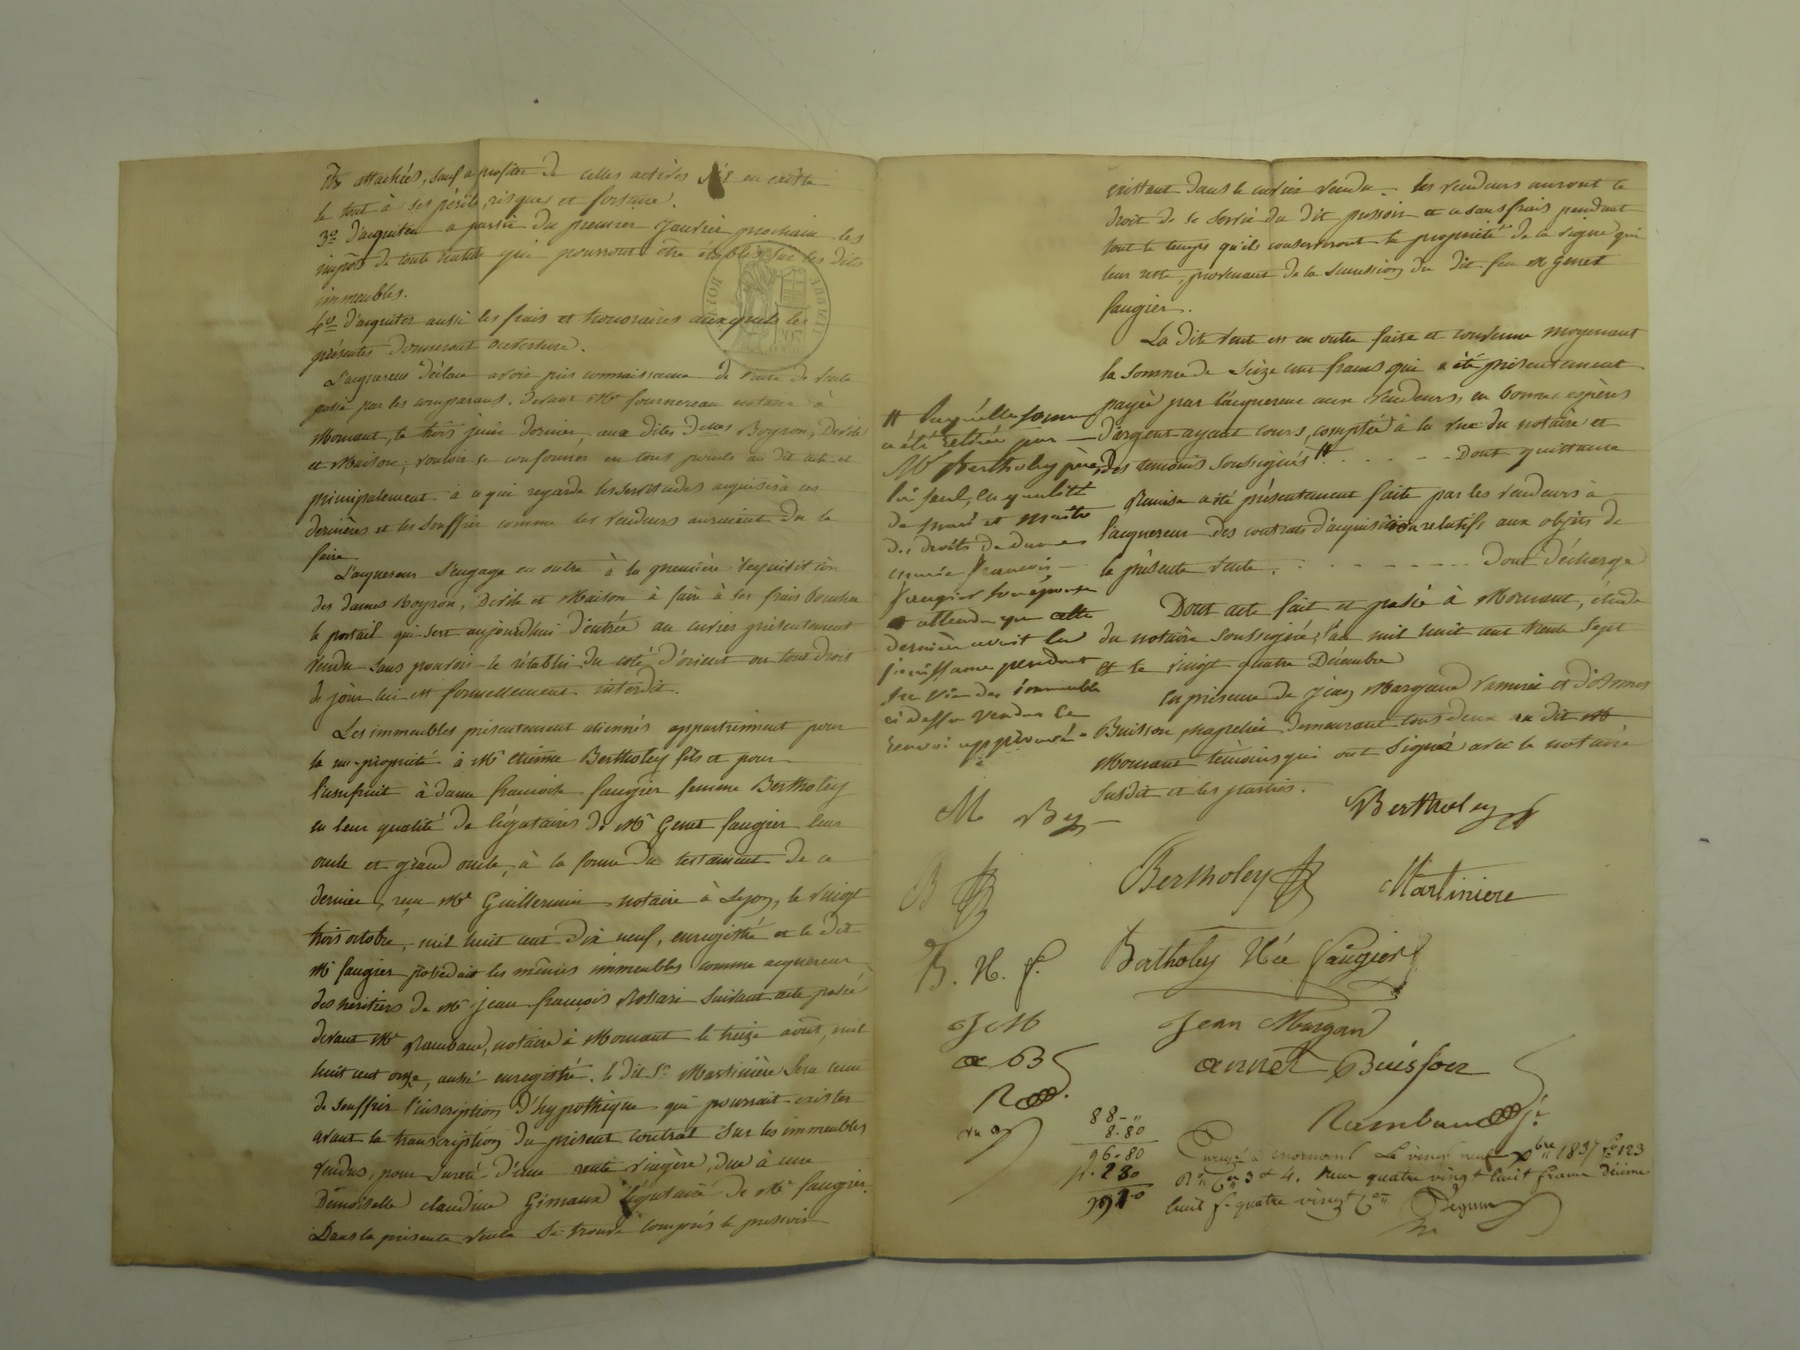 être attachées, sauf à profiter de celles actives s'il en existe
le tout à ses périls, risques et fortune.
3º D'acquitter a partir du premier Janvier prochain les
impôts de toute nature qui pourront être établis sur les dits
immeubles.
4º D'acquitter aussi les frais et honoraires auxquels les
présentes donneront ouverture.
L'acquereur déclare avoir pris connaissance de l'acte de vente
passé par les comparans, devant Me fournereau notaire à
Mornant, le trois juin dernier, aux dites Dmes Boyron, Deville
et Maison; vouloir se conformer en tous points au dit acte et
principalement à ce qui regarde les servitudes acquises à ces
dernières et les souffrir comme les vendeurs auraient du le
faire
L'acquereur s'engage en outre à la première réquisition
des dames Boyron, Deville et Maison à faire à ses frais boucher
le portail qui sert aujourd'hui d'entrée au cuvier présentement
vendu sans pouvoir le rétablir du coté d'orient ou tout droit
de jour lui est formellement interdit.
Les immeubles présentement aliennés appartiennent pour
la nu-propriété à Mr etienne Bertholey fils et pour
l'usufruit à dame francoise faugier femme Bertholey
en leur qualité de légataires de Mr Genet faugier leur
oncle et grand oncle, à la forme du testament de ce
dernier, reçu Me Guillermin notaire à Lyon, le vingt
trois octobre, mil huit cent dix neuf, enregistré et le dit
Mr faugier possédait les mêmes immeubles comme acquereur
des heritiers de Mr jean françois Rossari suivant acte passé
devant Me Rambaud, notaire à Mornant le treize août, mil
huit cent onze, aussi enregistré. le dit Sr Martinière sera tenu
de souffrir l'inscription d'hypothèque qui pourrait exister
avant la transcription du présent contrat sur les immeubles
vendus, pour sureté d'une rente viagère, due à une
Demoiselle claudine Gimaux légataire de Mr faugier.
Dans la présente vente se trouve compris le pressoir
existant dans le cuvier vendu. les vendeurs auront le
droit de se servir du dit pressoir et ce sans frais pendant
tout le temps qu'ils conserveront la propriété de la vigne qui
leur reste, provenant de la succession du dit feu Mr genet
faugier.
La dite vente est en outre faite et convenue moyenant
la somme de seize cent francs qui a été présentement
payée par l'acquereur aux vendeurs, en bonnes espèces
d'argent ayant cours, comptée à la vue du notaire et
des témoins soussignés // . - - - Dont quittance
Remise a été présentement faite par les vendeurs à
l'acquereur des contrats d'acquisition relatifs aux objets de
la présente vente. - - - - Dont décharge
Dont acte fait et passé à Mornant, étude
du notaire soussigné, l'an mil huit cent trente sept
et le vingt quatre Décembre
En présence de jean Margand ramirée et d'annet
Buisson, chapelier demeurant tous deux au dit M
Mornant témoins qui ont signé avec le notaire
susdit et les parties.
// Laquelle somme
a été retirée par
Mr Bertholey père
lui seul, en qualité
de mari et maître
des droits de dame
francois
faugier son épouse
attendu que cette
dernière avait la
jouissance pendant
sa vie des immeubles
ci dessus vendus le
renvoi approuvé
M By Bertholey
B B Bertholey Martiniere
B. N. f. Bertholey Née faugier
J M Jean Margand
a B annet Buisson
R Rambaud
88-"
8.80
96.80
2 80
Enregé à mornant le vingt neuf Xbre 1837 fo 123
Ro Ces 3 et 4. Reçu quatre vingt huit francs Décime
huit f. quatre vingt Ces